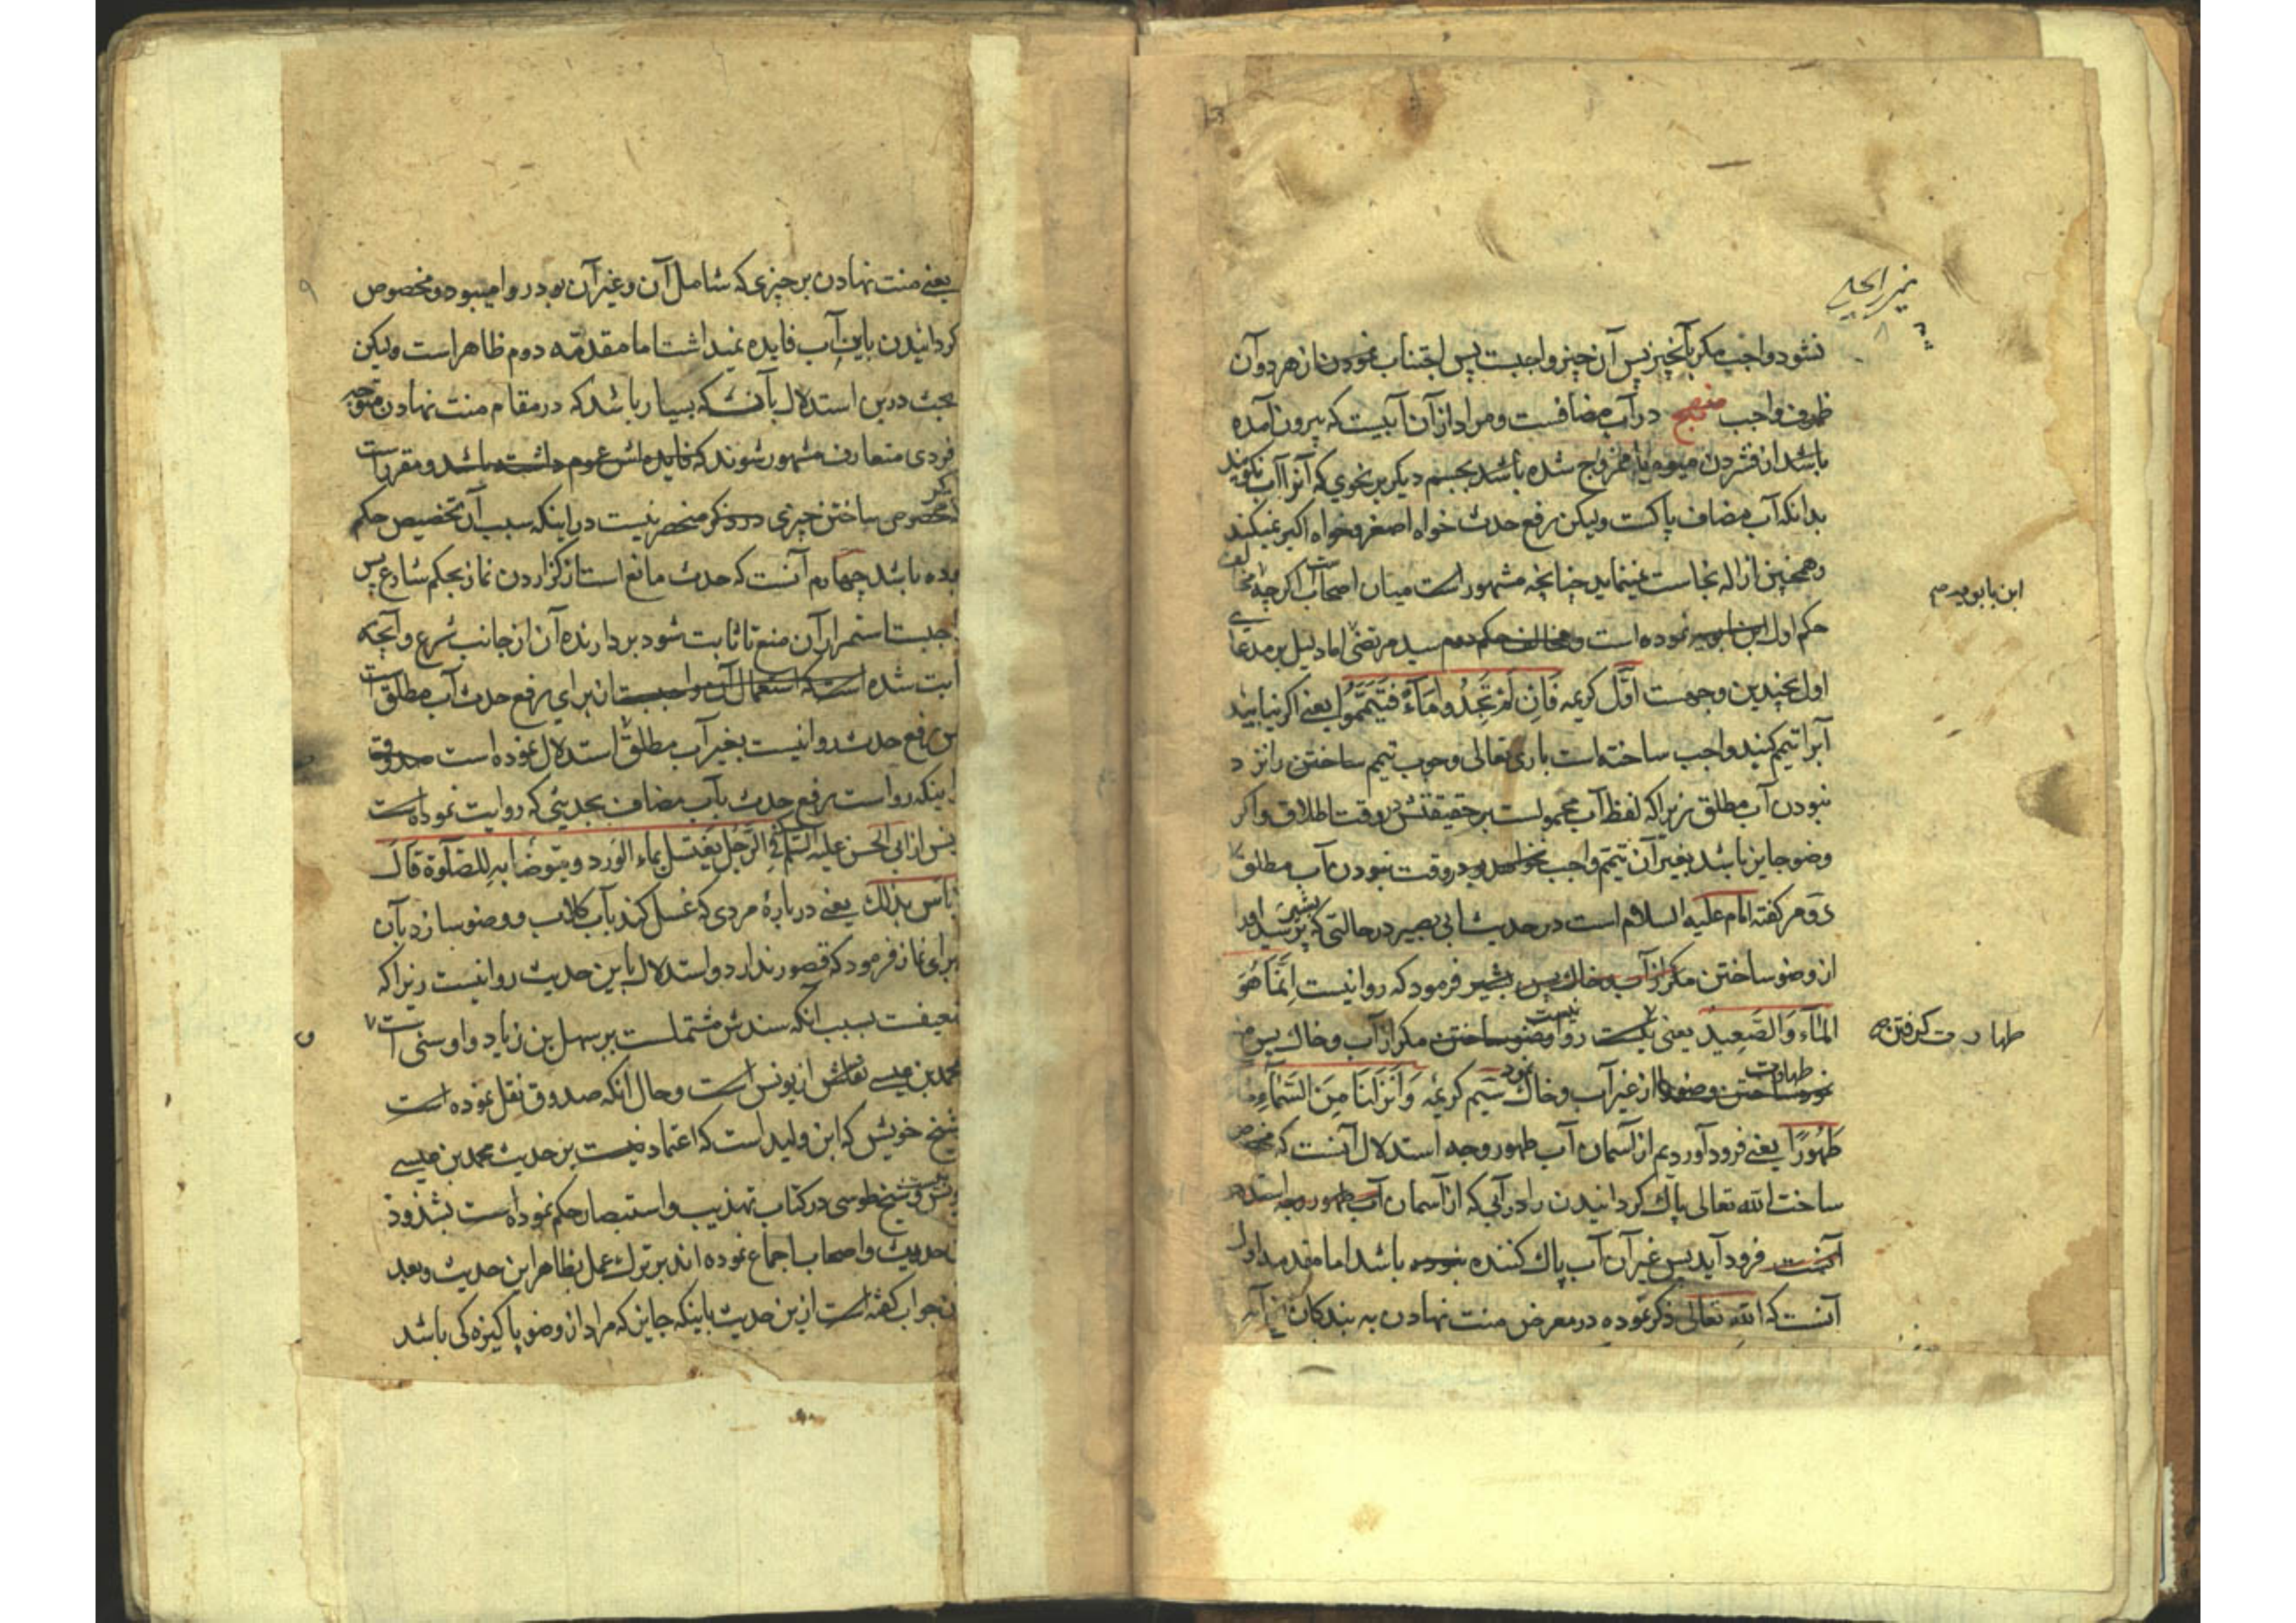 نشود واجب مکر بآنچیز پس آن چیز واجبست پس اجتناب نمودن از هر دو آن
ظروف واجب منهج در آب مضافست و مراد از آن آبیست که بیرون آمده
باشد از فشردن میوه یا ممزوج شده باشد بجسم دیکر بر نحوی که آنرا آب نکویند
بدانکه آب مضاف پاکست ولیکن رفع حدث خواه اصغر و خواه اکبر نمیکند
و همچنین ازاله نجاست نمینماید چنانچه مشهور است میان اصحاب اکرچه مخالفت
ابن بابویه
حکم اول ابن بابویه نموده است و مخالف حکم دوم سید مرتضی اما دلیل بر مدعای
اول بچندین وجهست اوّل کریمه فَاِن لَمْ تَجِدُوا مَآءً فَتَیَمَّمُوا یعنی اکر نیابید
آبرا تیمم کنید واجب ساخته است باری تعالی وجوب تیمم ساختن را نزد
نبودن آب مطلق زیرا که لفظ آب محمولست بر حقیقتش در وقت اطلاق و اکر
وضو جایز باشد بغیر آن تیمم واجب نخواهد بود در وقت نبودن آب مطلق
دوم کفته امام علیه السلام است در حدیث ابی بصیر در حالتی که پرسید او
از وضو ساختن مکر از آب و خاک پس بشیر فرمود که روا نیست اِنَّمَا هُوَ
المَآءُ وَالصَّعِیدُ یعنی نیست روا وضو ساختن مکر از آب و خاک پس
طهارت کرفتن
طهارت ساختن وضو از غیر آب و خاک سیم کریمه وَاَنزَلنَا مِنَ السَّمَآءِ مَاء
طَهُورًا یعنی فرود آوردیم از آسمان آب طهور وجه استدلال آنست که مخصوص
ساخت الله تعالی پاک کردانیدن را در آبی که از آسمان آب طهور وجه استدلال
آنست فرود آید پس غیر آن آب پاک کننده نبوده باشد اما مقدمه اول
آنست که الله تعالی ذکر نموده در معرض منت نهادن به بندکان
یعنی منت نهادن بر چیزی که شامل آن و غیر آن بود روا میبود و مخصوص
کردانیدن باین آب فایده نمیداشت اما مقدّمه دوم ظاهر است ولیکن
بحث درین استدلال بآنست که بسیار باشد که در مقام منت نهادن متوجه
فردی متعارف مشهور شوند که فایده اش عموم داشته باشد و مقرر است
مخصوص ساختن چیزی در ذکر منحصر نیست در اینکه سبب آن تخصیص حکم
بوده باشد چهارم آنست که حدث مانع است از کزاردن نماز بحکم شارع پس
واجبست استمرار آن منع تا ثابت شود بردارنده آن از جانب شرع و آنچه
ثابت شده است که استعمال آن واجبست از برای رفع حدث آب مطلق است
پس رفع حدث روا نیست بغیر آب مطلق و استدلال نموده است صدوق
اینکه رواست رفع حدث بآب مضاف بحدیثی که روایت نموده است
یونس از ابی الحسن علیه السّلم فی الرَّجُل یَغتَسِل بِماءِ الوَرد و یتوضّأ بِهِ للصّلوة قال
لا بأس بذلک یعنی دربارهٔ مردی که غسل کند بآب کلاب و وضو سازد بآن
برای نماز فرمود که قصور ندارد و استدلال باین حدیث روا نیست زیرا که
ضعیفست بسبب آنکه سندش مشتملست بر سهل بن زیاد و او سنی است
محمد بن عیسی نقلش از یونس است و حال آنکه صدوق نقل نموده است
شیخ خویش که ابن ولید است که اعتماد نیست بر حدیث محمد بن عیسی
یونس و شیخ طوسی در کتاب تهذیب و استبصار حکم نموده است بشذوذ
حدیث و اصحاب اجماع نموده اند بر ترک عمل بظاهر این حدیث و بعد
جواب کفته است ازین حدیث باینکه جایز که مراد از وضو پاکیزه کی باشد